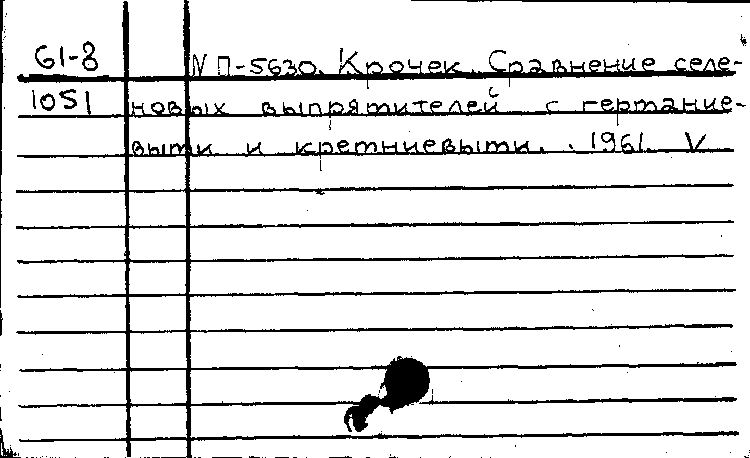 61-8 N П-5630. Крочек. Сравнение селе-
1051 новых выпрямителей с германие-
выми и кремниевыми. 1961. V